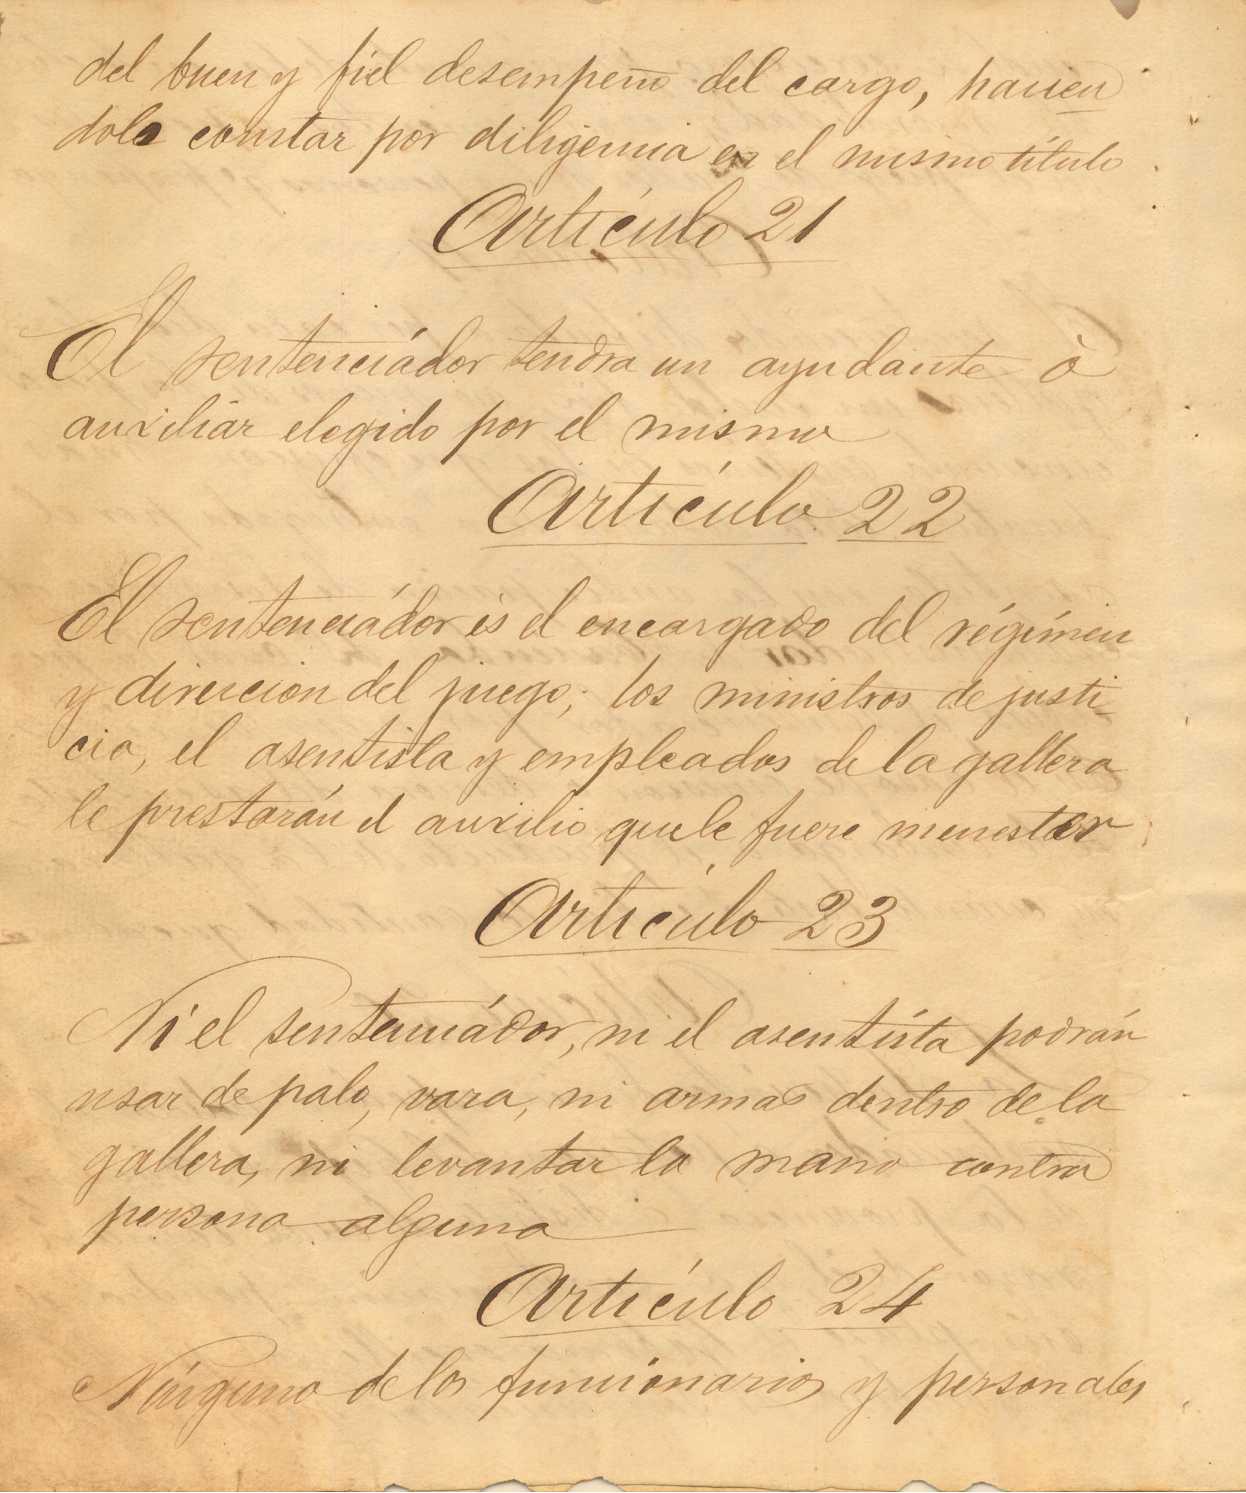 del buen y fiel desempeño del cargo, hacien
dolo constar por diligencia en el mismo título
Artículo 21
El sentenciador tendra un ayudante ò
auxiliar elegido por el mismo
Artículo 22
El sentenciador es el encargado del régimen
y direccion del juego; los ministros de justi-
cia, el asentista y empleados de la gallera
le prestarán el auxilio que le fuere menester
Artículo 23
Ni el sentenciador, ni el asentista podrán
usar de palo, vara, ni armas dentro de la
gallera, ni levantar la mano contra
persona alguna
Artículo 24
Ninguno de los funcionarios y personales